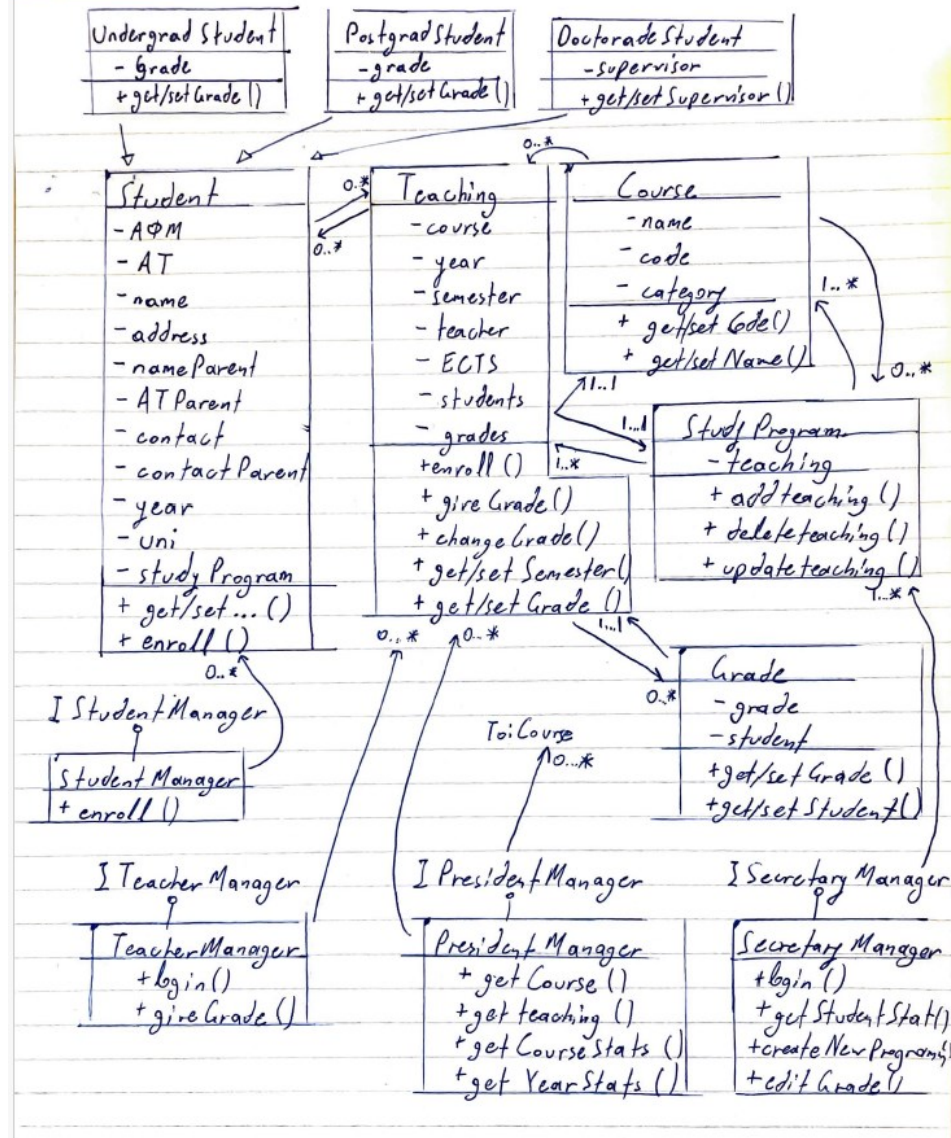 Undergrad Student
- Grade
+ get/set Grade ()
Postgrad Student
- grade
+ get/set Grade ()
Doctorade Student
- supervisor
+ get/set Supervisor ()
Student
- ΑΦΜ
- AT
- name
- address
- nameParent
- ATParent
- contact
- contactParent
- year
- uni
- study Program
+ get/set ... ()
+ enroll ()
0..*
0..*
0..*
Teaching
- course
- year
- semester
- teacher
- ECTS
- students
- grades
+ enroll ()
+ give Grade ()
+ change Grade ()
+ get/set Semester ()
+ get/set Grade ()
0..*
Course
- name
- code
- category
+ get/set Code ()
+ get/set Name ()
1..*
0..*
1..1
1..1
1..*
Study Program
- teaching
+ add teaching ()
+ delete teaching ()
+ update teaching ()
1..*
0..*
0..*
1..1
0..*
Grade
- grade
- student
+ get/set Grade ()
+ get/set Student ()
0..*
I Student Manager
Student Manager
+ enroll ()
To: Course
0...*
I Teacher Manager
Teacher Manager
+ login ()
+ give Grade ()
I President Manager
President Manager
+ get Course ()
+ get teaching ()
+ get Course Stats ()
+ get Year Stats ()
I Secretary Manager
Secretary Manager
+ login ()
+ get Student Stat ()
+ create New Program ()
+ edit Grade ()